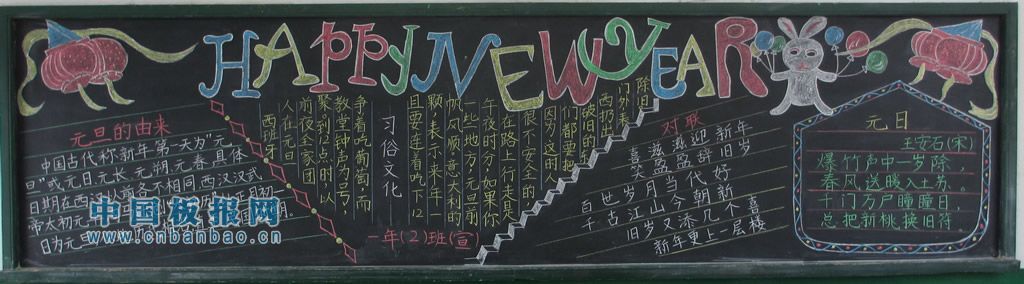 HAPPY NEW YEAR
元旦的由来
中国古代称新年第一天为"元
旦"或元日元长、元朔元春.具体
日期在西汉以前各不相同.西汉汉武
帝太初元
日为元
习俗文化
西班牙
人在元旦
前夜全家团
聚,到12点时,以
教堂钟声为号,
争着吃葡萄,而
且要连着吃下12
颗,表示来年一
帆风顺,意大利的
一些地方,元旦前
午夜时分,如果你
在路上行走是
很不安全的
因为这时人
们都要把
破旧的东
西扔出
门外,表
除旧
一年(2)班(宣)
对联
喜滋滋迎新年
笑盈盈辞旧岁
百世岁月当代好
千古江山今朝新
旧岁又添几个喜
新年更上一层楼
元日
王安石(宋)
爆竹声中一岁除,
春风送暖入土苏。
千门万户瞳瞳日,
总把新桃换旧符
中国板报网
www.cnbanbao.cn